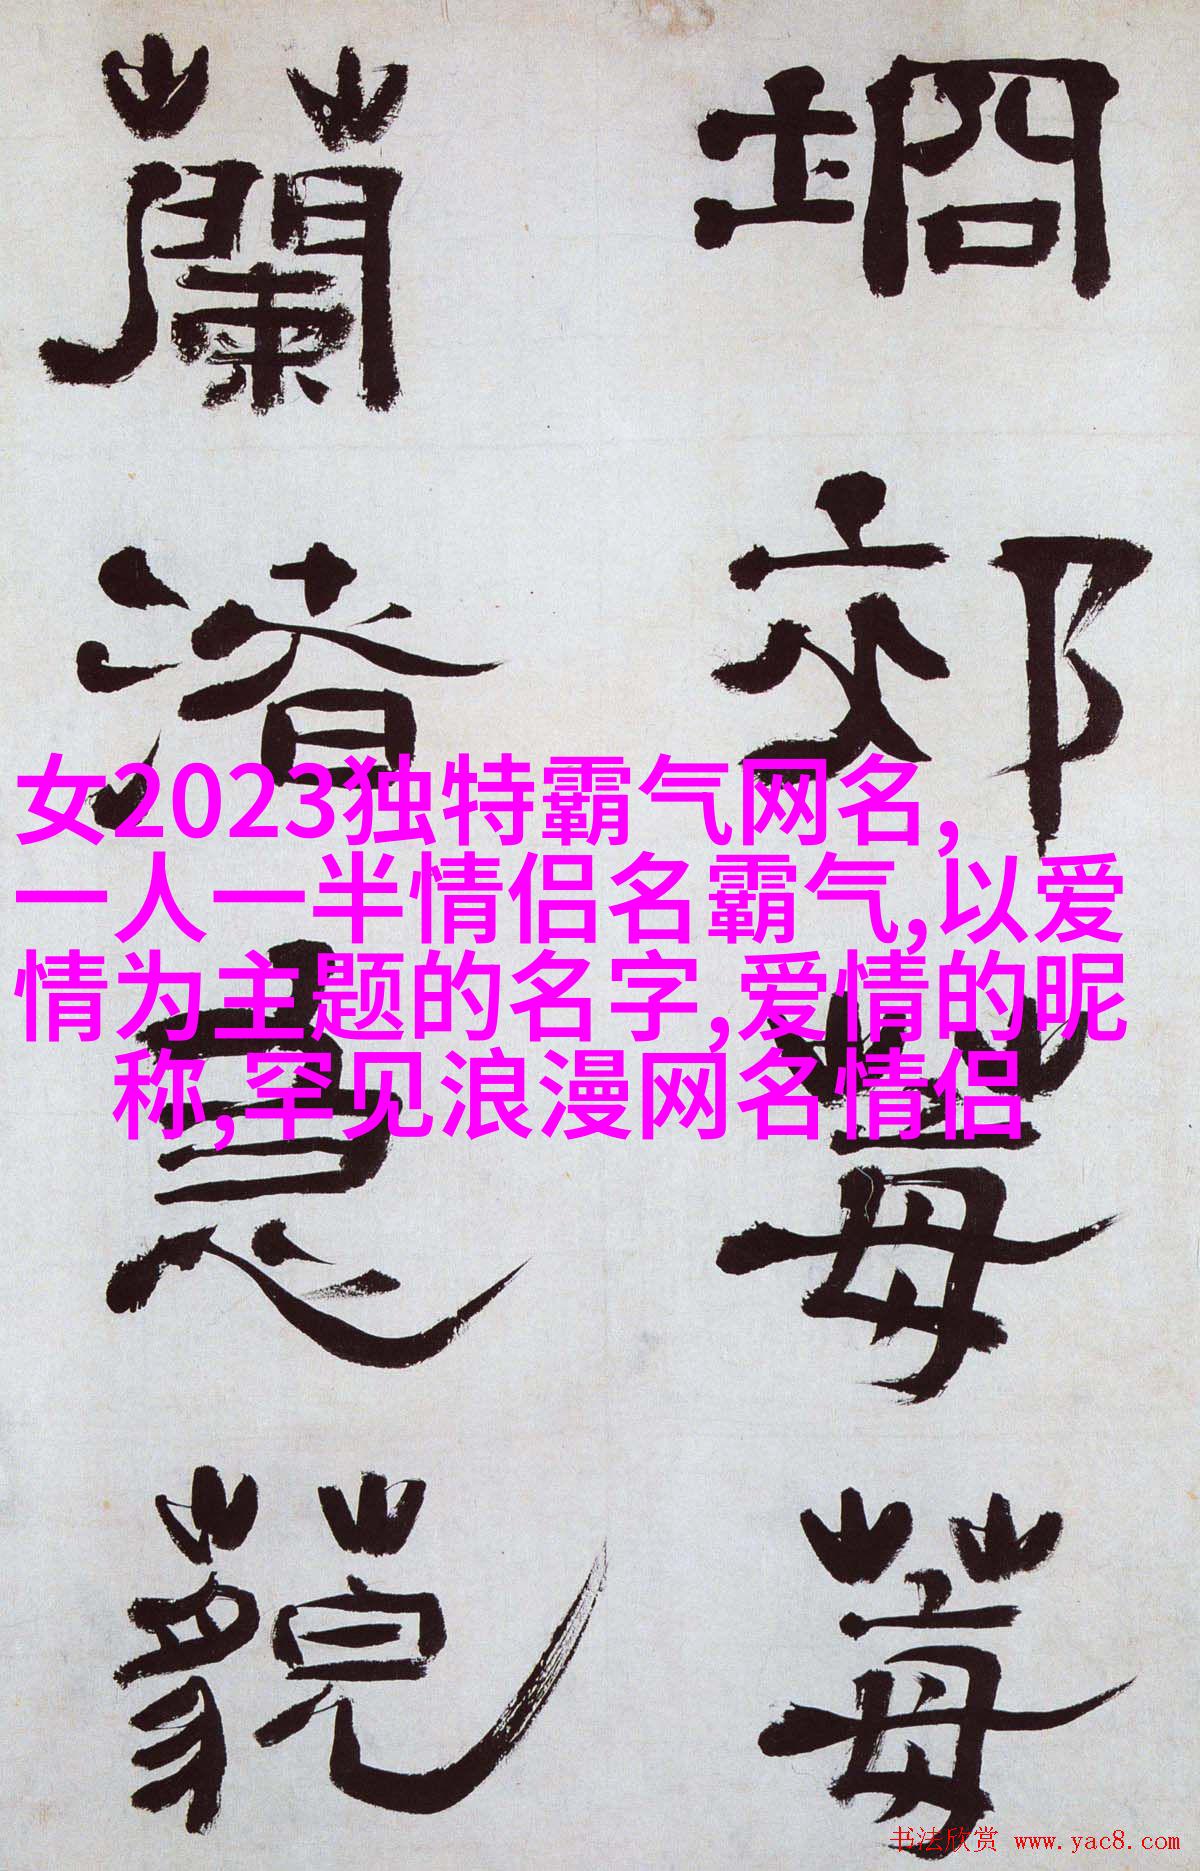 坰郊莓莓
蘭渚藐
女2023独特霸气网名,
一人一半情侣名霸气,以爱
情为主题的名字,爱情的昵
称,罕见浪漫网名情侣
书法欣赏 www.yac8.com